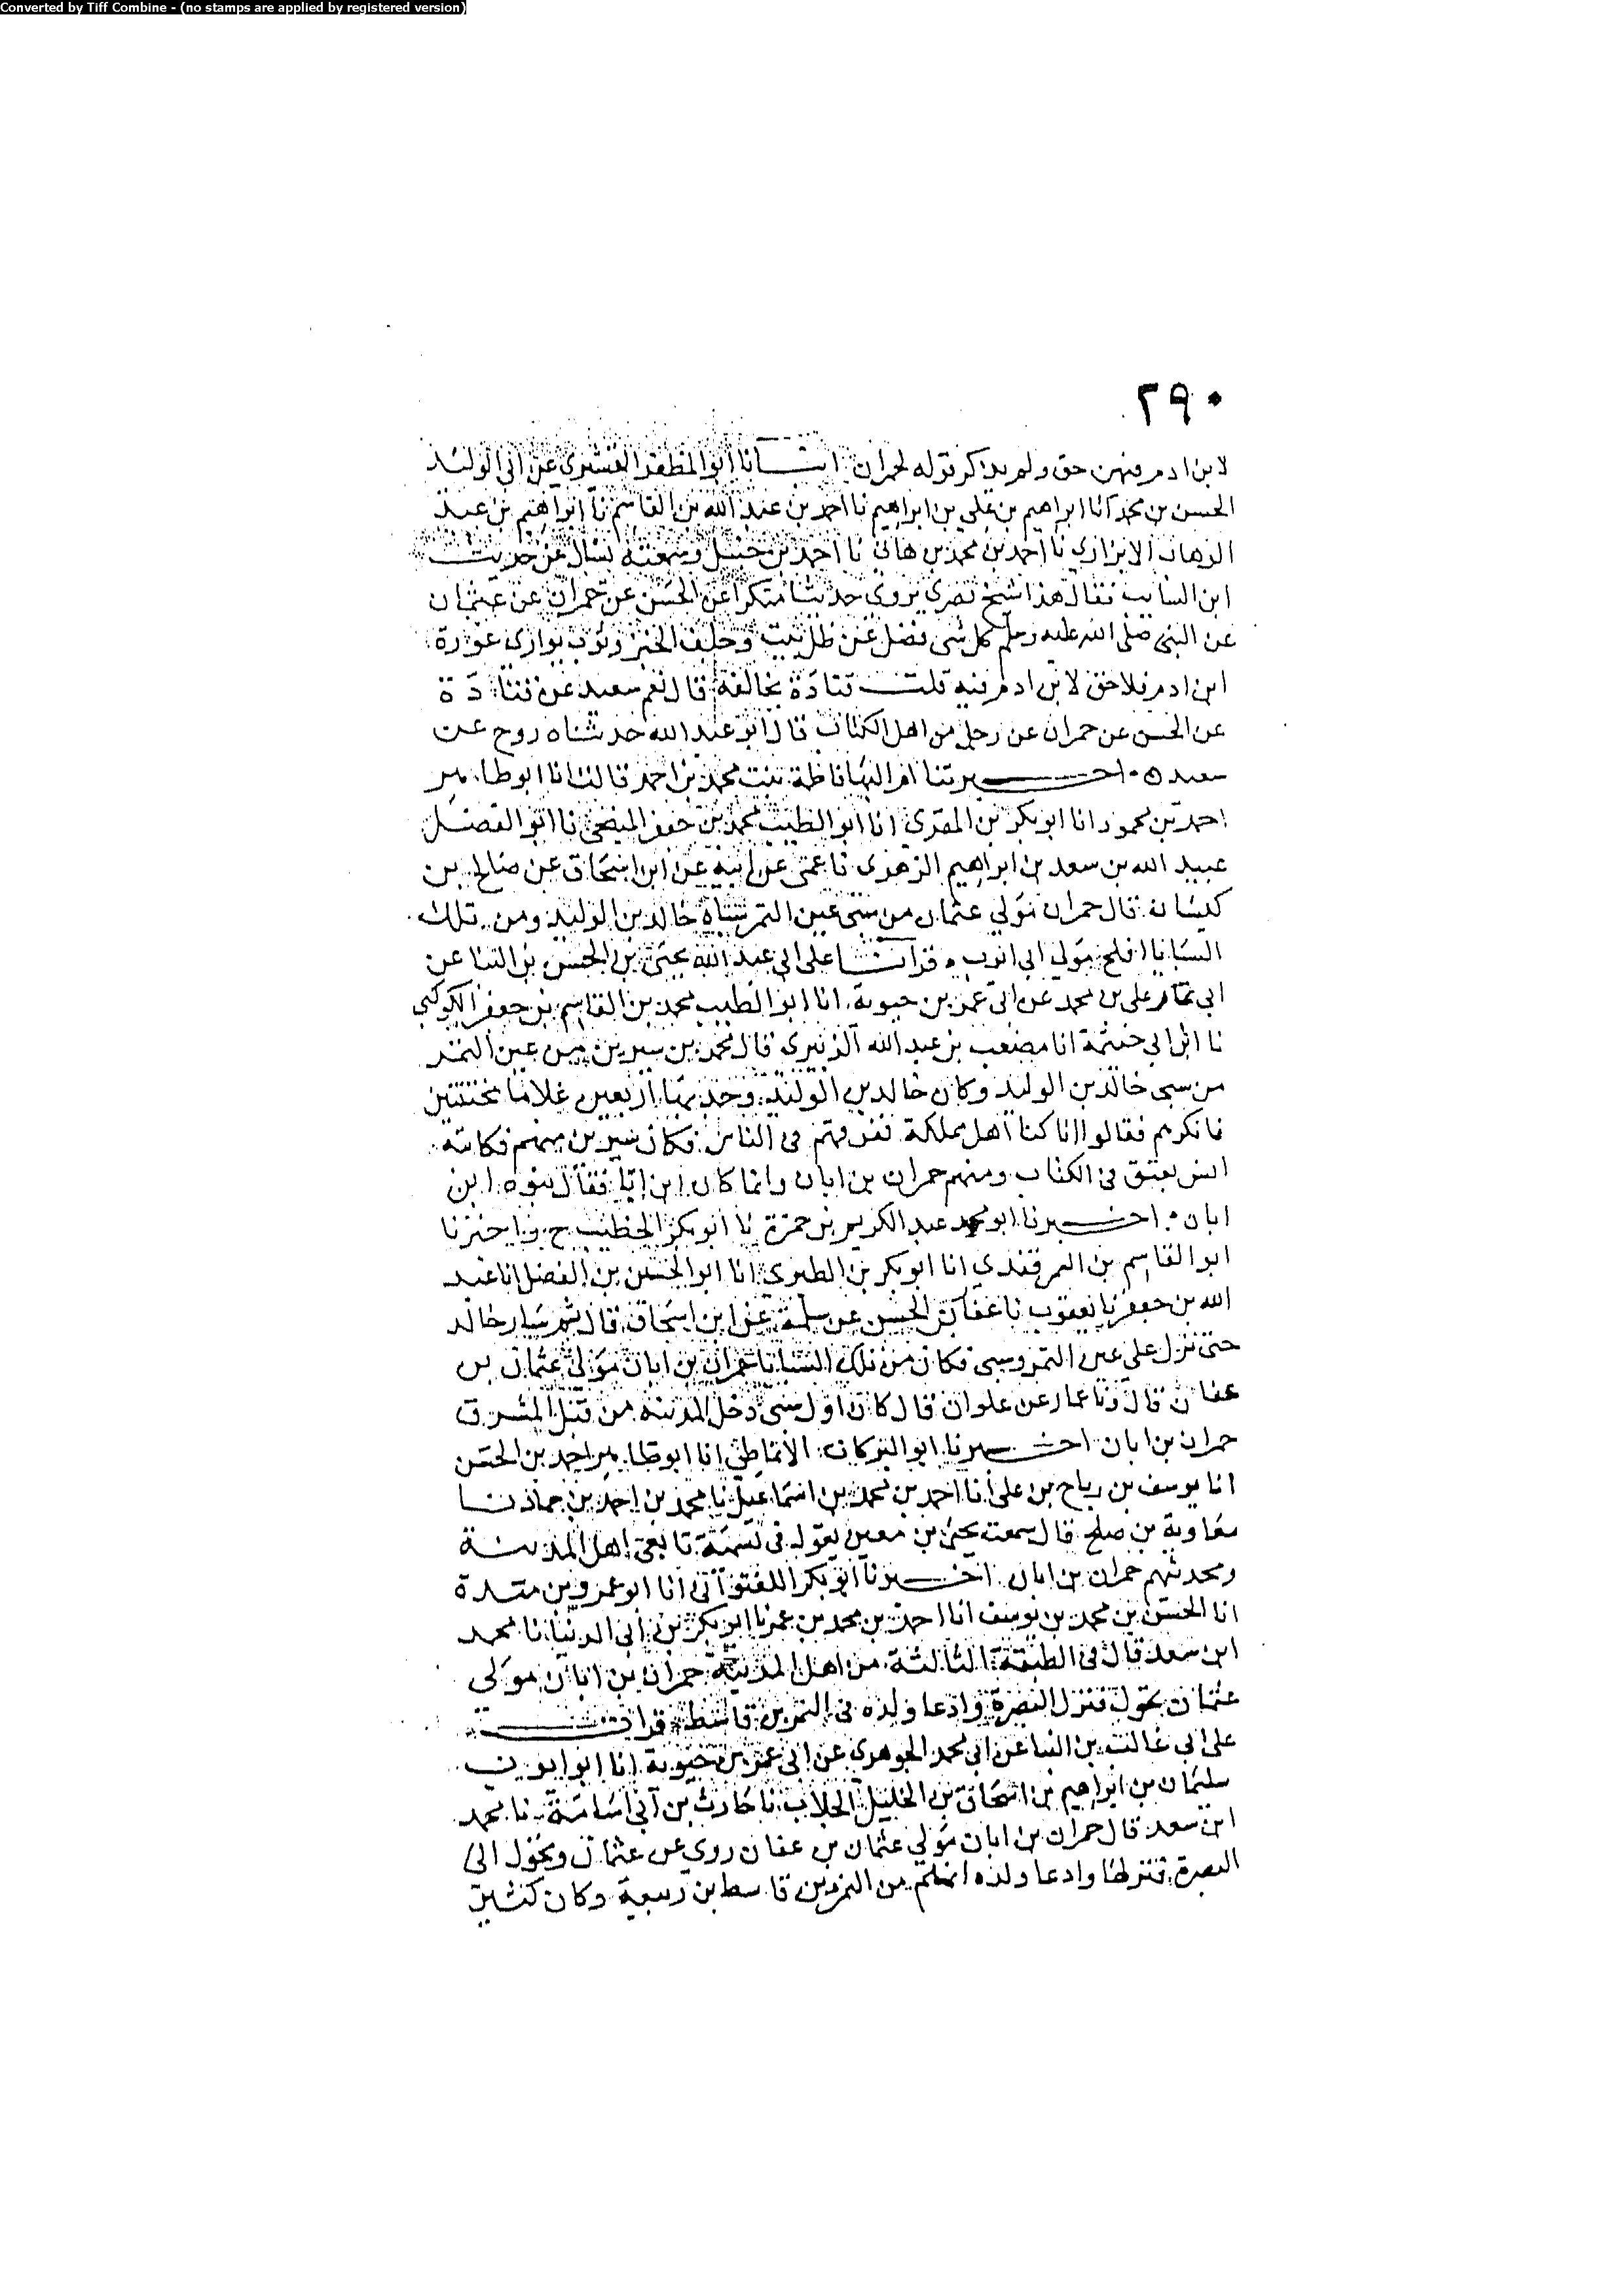 Converted by Tiff Combine - (no stamps are applied by registered version)
٢٩٠
لابن ادم فيهن حق ولم يذكر قوله لحمران انبانا ابو المظفر القشيري عن ابي الوليد
الحسن بن محمد انا ابراهيم بن علي بن ابراهيم نا احمد بن عبد الله بن القاسم نا ابراهيم بن عبد
الوهاب الابزاري نا احمد بن محمد بن هاني نا احمد بن حنبل وسمعته يسال عن حديث
ابن السايب فقال هذا شيخ بصري يروي حديثا منكرا عن الحسن عن حمران عن عثمان
عن النبي صلى الله عليه وسلم كل شي فضل عن ظل بيت وجلف الخبز وثوب يواري عورة
ابن ادم فلا حق لابن ادم فيه قلت قتادة يخالفه قال نعم سعيد عن قتادة
عن الحسن عن حمران عن رجل من اهل الكتاب قال ابو عبد الله حدثناه روح عن
سعيد ه اخبرتنا ام البها فاطمة بنت محمد بن احمد قالت انا ابو طاهر
احمد بن محمود انا ابو بكر بن المقري انا ابو الطيب محمد بن جعفر المنبجي نا ابو الفضل
عبيد الله بن سعد بن ابراهيم الزهري نا عمي عن ابيه عن ابن اسحاق عن صالح بن
كيسان قال حمران مولي عثمان من سبي عين التمر سباه خالد بن الوليد ومن تلك
السبايا افلح مولي ابي ايوب ه قرات على ابي عبد الله يحيى بن الحسن بن البنا عن
ابي تمام علي بن محمد عن ابي عمر بن حيوية انا ابو الطيب محمد بن القاسم بن جعفر الكوكبي
نا ابن ابي خيثمة انا مصعب بن عبد الله الزبيري قال محمد بن سيرين من عين التمر
من سبي خالد بن الوليد وكان خالد بن الوليد وجد بها اربعين غلاما مختتنين
فانكرهم فقالوا انا كنا اهل مملكة ففرقهم في الناس فكان سيرين منهم فكاتبه
انس بعتق في الكتاب ومنهم حمران بن ابان وانما كان ابن ابا فقال بنوه ابن
ابان اخبرنا ابو محمد عبد الكريم بن حمزة نا ابو بكر الخطيب ح واخبرنا
ابو القاسم بن السمرقندي انا ابو بكر بن الطبري انا ابو الحسين بن الفضل انا عبد
الله بن جعفر نا يعقوب نا عمار بن الحسن عن سلمة عن ابن اسحاق قال ثم سار خالد
حتى نزل على عين التمر وسبى فكان من تلك السبايا حمران بن ابان مولى عثمان بن
عفان قال ونا عمار عن علوان قال كان اول سبي دخل المدينة من قبل المشرق
حمران بن ابان اخبرنا ابو البركات الانماطي انا ابو طاهر احمد بن الحسن
انا يوسف بن رباح بن علي انا احمد بن محمد بن اسماعيل نا محمد بن احمد بن حماد نا
معاوية بن صلح قال سمعت يحيى بن معين يقول في تسمية تابعي اهل المدينة
ومحدثيهم حمران بن ابان اخبرنا ابو بكر اللفتواني انا ابو عمرو بن مندة
انا الحسن بن محمد بن يوسف انا احمد بن محمد بن عمر نا ابو بكر بن ابي الدنيا نا محمد
ابن سعد قال في الطبقة الثالثة من اهل المدينة حمران بن ابان مولى
عثمان تحول فنزل البصرة وادعا ولده في النمر بن قاسط قرات
على ابي غالب بن البنا عن ابي محمد الجوهري عن ابي عمر بن حيوية انا ابو ايوب
سليمان بن ابراهيم بن اسحاق بن الخليل الجلاب نا حارث بن ابي اسامة نا محمد
ابن سعد قال حمران بن ابان مولي عثمان بن عفان روي عن عثمان وتحول الى
البصرة فنزلها وادعا ولده انهم من النمر بن قاسط بن ربيعة وكان كثير